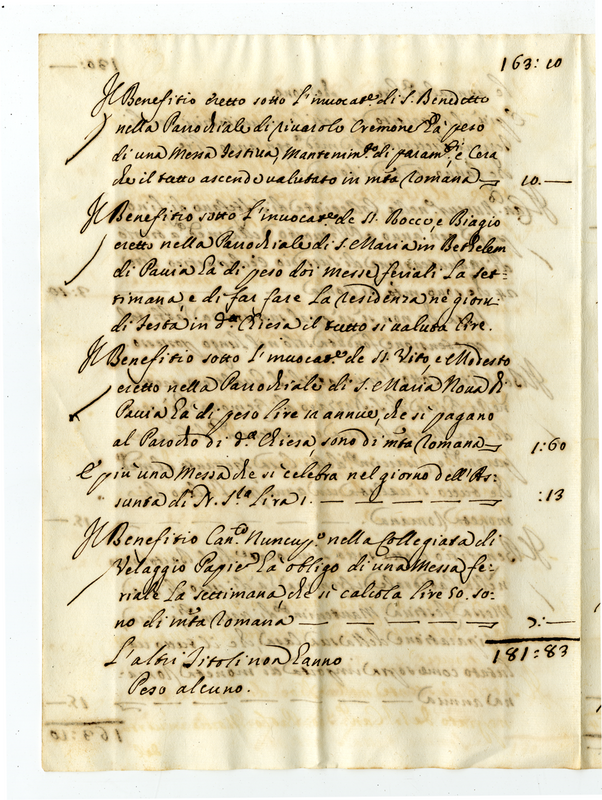 163:10
Il Benefitio eretto sotto l'invocat.e di S. Benedetto
nella Parrochiale di Rivarolo Cremone. hà peso
di una Messa festiva, Mantenim.to di param.ti, e Cera
che il tutto ascende valutato in m.ta Romana 10.—
Il Benefitio sotto l'invocat.e de SS. Rocco, e Biagio
eretto nella Parrochiale di S. Maria in Bethelem
di Pavia hà di peso doi messe feriali la set=
timana, e di far fare la residenza né giorni
di festa in d.ta Chiesa il tutto si valuta lire.
Il Benefitio sotto l'invocat.e de SS. Vito, e Modesto
eretto nella Parrochiale di S. Maria Nova di
Pavia hà di peso lire 12 annue, che si pagano
al Parocho di d.ta Chiesa, sono di m.ta Romana 1:60
E più una Messa che si celebra nel giorno dell'As=
sunta di N. S.ra Lira 1. — — — — — :13
Il Benefitio Can.co Nuncup.o nella Collegiata di
Velaggio Papie. hà obligo di una Messa fe=
riale la settimana, che si calcola lire 50. so=
no di m.ta Romana — — — — —
181:83
L'altri Titoli non hanno
Peso alcuno.